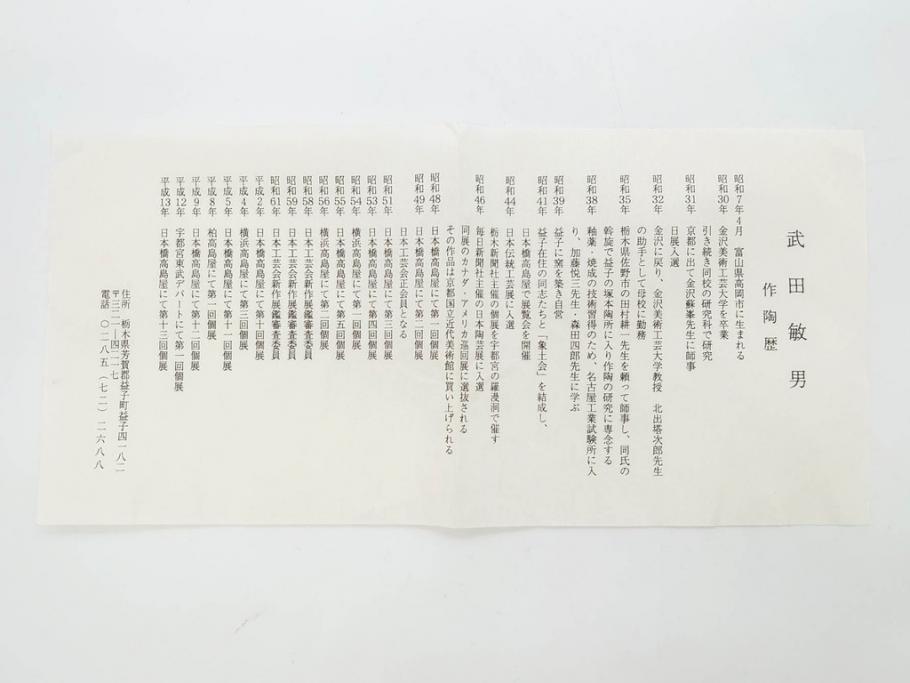 武田敏男
作陶歴
昭和7年4月 富山県高岡市に生まれる
昭和30年 金沢美術工芸大学を卒業
引き続き同校の研究科で研究
昭和31年 京都に出て金沢蘇峯先生に師事
日展入選
昭和32年 金沢に戻り、金沢美術工芸大学教授 北出塔次郎先生
の助手として母校に勤務
昭和35年 栃木県佐野市の田村耕一先生を頼って師事し、同氏の
斡旋で益子の塚本陶所に入り作陶の研究に専念する
昭和38年 釉薬・焼成の技術習得のため、名古屋工業試験所に入
り、加藤悦三先生・森田四郎先生に学ぶ
昭和39年 益子に窯を築き自営
昭和41年 益子在住の同志たちと「象土会」を結成し、
日本橋高島屋で展覧会を開催
昭和44年 日本伝統工芸展に入選
栃木新聞社主催の個展を宇都宮の羅漫洞で催す
昭和46年 毎日新聞社主催の日本陶芸展に入選
同展のカナダ・アメリカ巡回展に選抜される
その作品は京都国立近代美術館に買い上げられる
昭和48年 日本橋高島屋にて第一回個展
昭和49年 日本橋高島屋にて第二回個展
日本工芸会正会員となる
昭和51年 日本橋高島屋にて第三回個展
昭和53年 日本橋高島屋にて第四回個展
昭和54年 横浜高島屋にて第一回個展
昭和55年 日本橋高島屋にて第五回個展
昭和56年 横浜高島屋にて第二回個展
昭和58年 日本工芸会新作展鑑審査委員
昭和59年 日本工芸会新作展鑑審査委員
昭和61年 日本工芸会新作展鑑審査委員
平成2年 日本橋高島屋にて第十回個展
平成4年 横浜高島屋にて第三回個展
平成5年 日本橋高島屋にて第十一回個展
平成8年 柏高島屋にて第一回個展
平成9年 日本橋高島屋にて第十二回個展
平成12年 宇都宮東武デパートにて第一回個展
平成13年 日本橋高島屋にて第十三回個展
住所 栃木県芳賀郡益子町益子四一八二
〒三二一―四二一七
電話 〇二八五(七二)二六八八